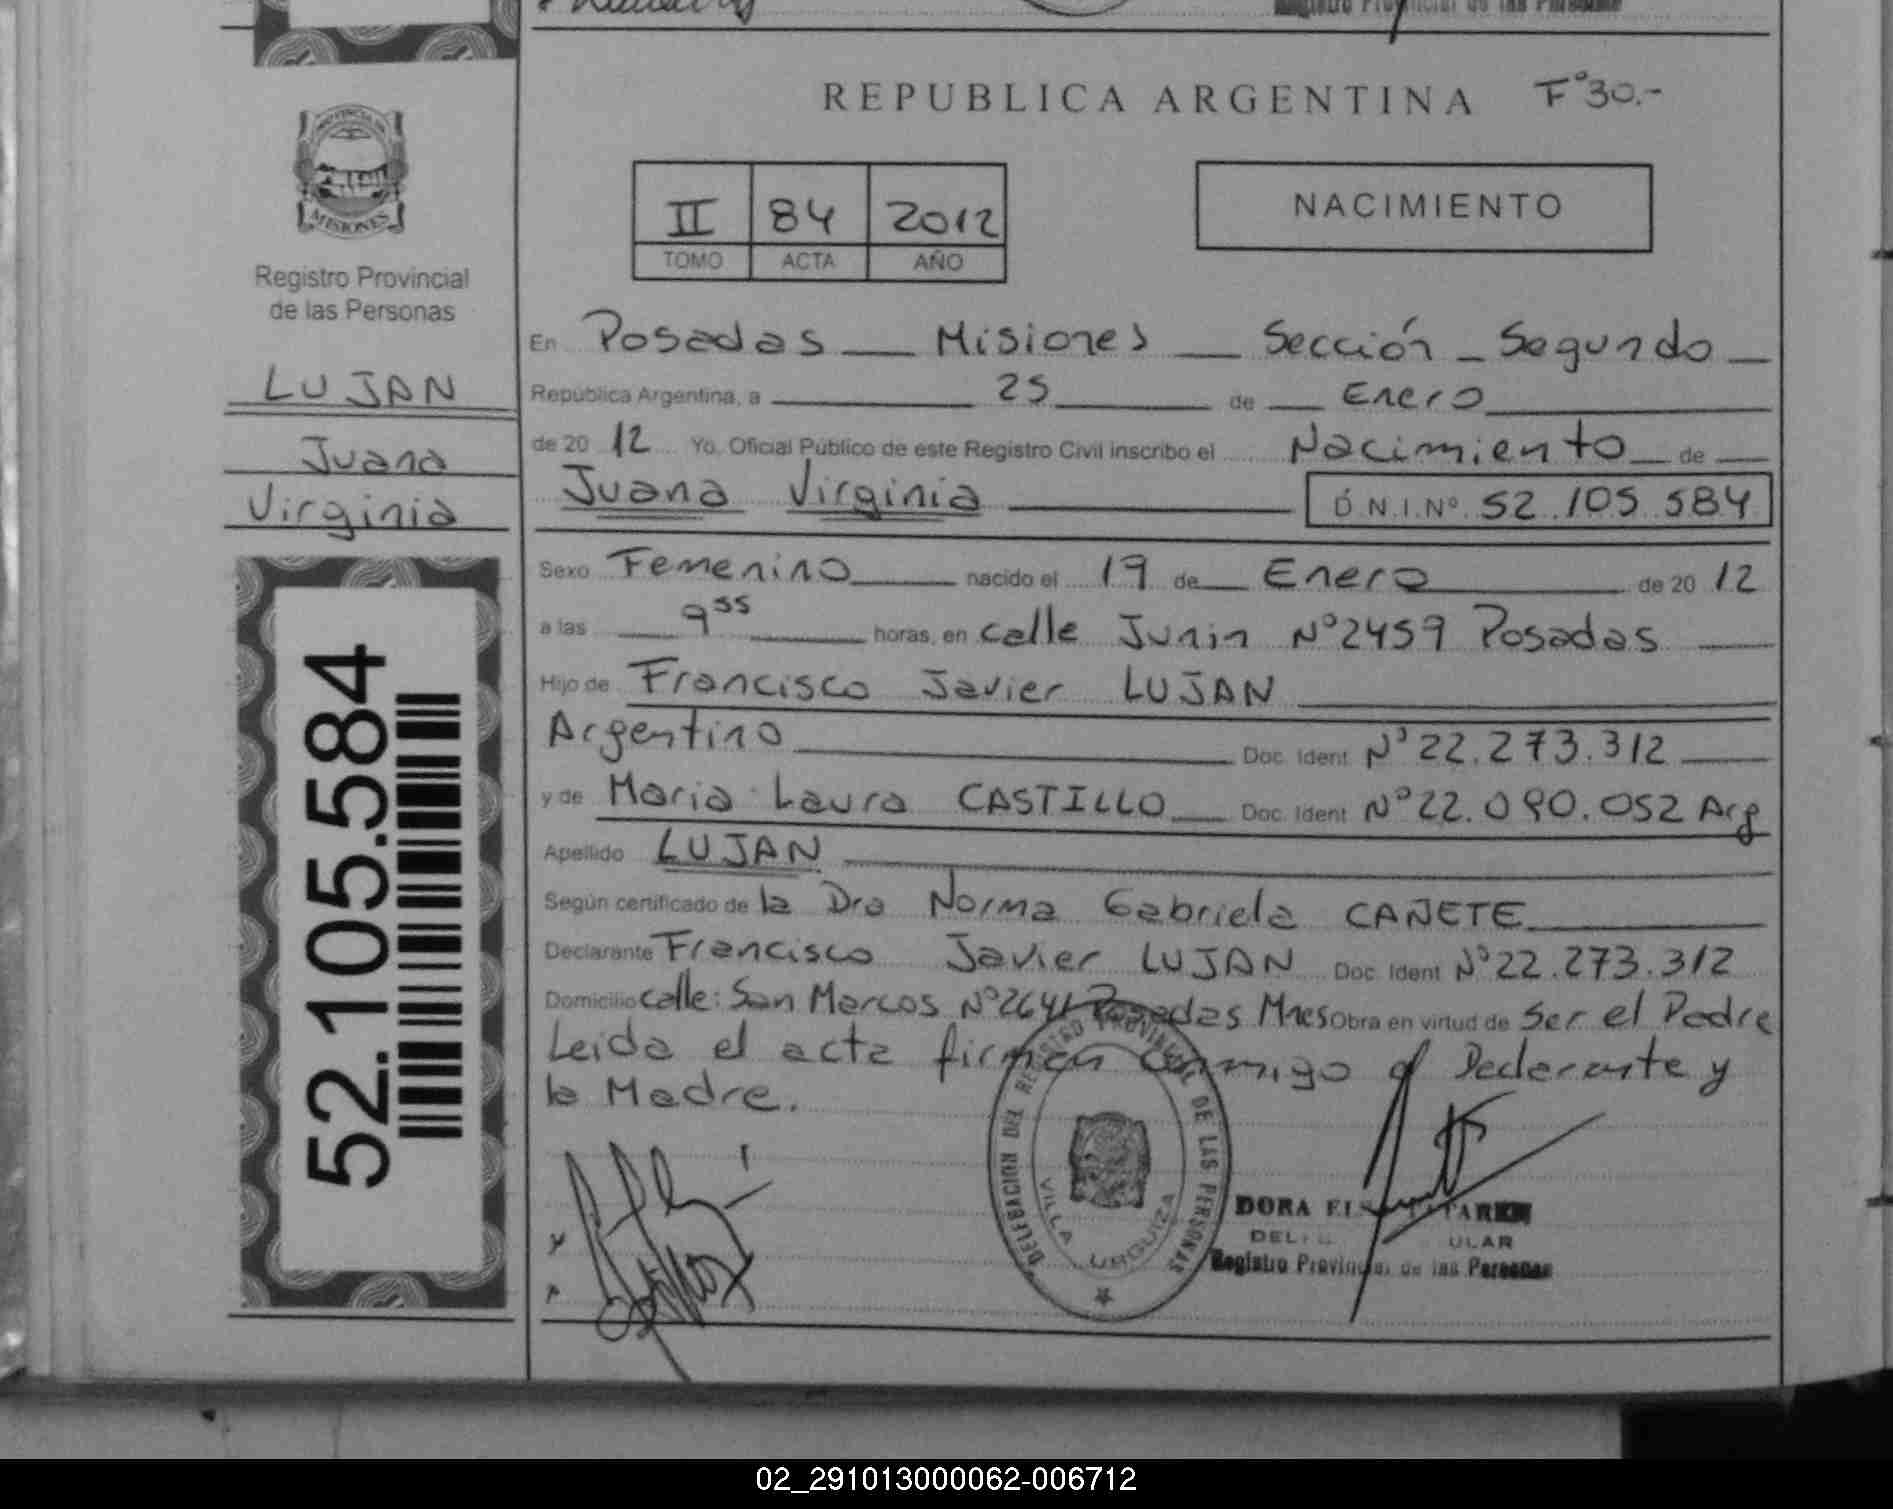 Registro Provincial de las Personas
REPUBLICA ARGENTINA F°30.-
PROVINCIA DE
MISIONES
Registro Provincial
de las Personas
LUJAN
Juana
Virginia
52.105.584
II 84 2012
TOMO ACTA AÑO
NACIMIENTO
En Posadas Misiones Sección Segundo
República Argentina, a 25 de Enero
de 20 12 Yo, Oficial Público de este Registro Civil inscribo el Nacimiento de
Juana Virginia D.N.I.N° 52.105.584
Sexo Femenino nacido el 19 de Enero de 20 12
a las 9 55 horas, en calle Junin N°2459 Posadas
Hijo de Francisco Javier LUJAN
Argentino Doc. Ident N°22.273.312
y de Maria Laura CASTILLO Doc. Ident N°22.090.052 Arg
Apellido LUJAN
Según certificado de la Dra Norma Gabriela CAÑETE
Declarante Francisco Javier LUJAN Doc. Ident N°22.273.312
Domicilio calle: San Marcos N°2641 Posadas Mnes Obra en virtud de Ser el Padre
Leida el acta firman conmigo el Declarante y
la Madre.
DELEGACION DEL REGISTRO PROVINCIAL DE LAS PERSONAS
VILLA URQUIZA
DORA
Registro Provincial de las Personas
02_291013000062-006712